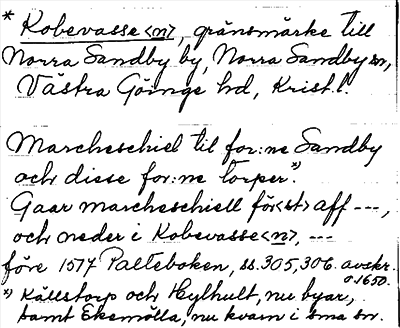 * Kobevasse <n>, gränsmärke till
Norra Sandby by, Norra Sandby sn,
Västra Göinge hd, Krist. l.
Marcheschiel til for:ne Sandby
och diese for:ne torper. *)
Gaar marcheschiell för<st> aff ---,
och neder i Kobevasse<n>, ---
före 1577 Palteboken, ss. 305, 306. avskr. o. 1650.
*) Källstorp och Hylhult, nu byar,
samt Ekemölla, nu kvarn i sma sn.